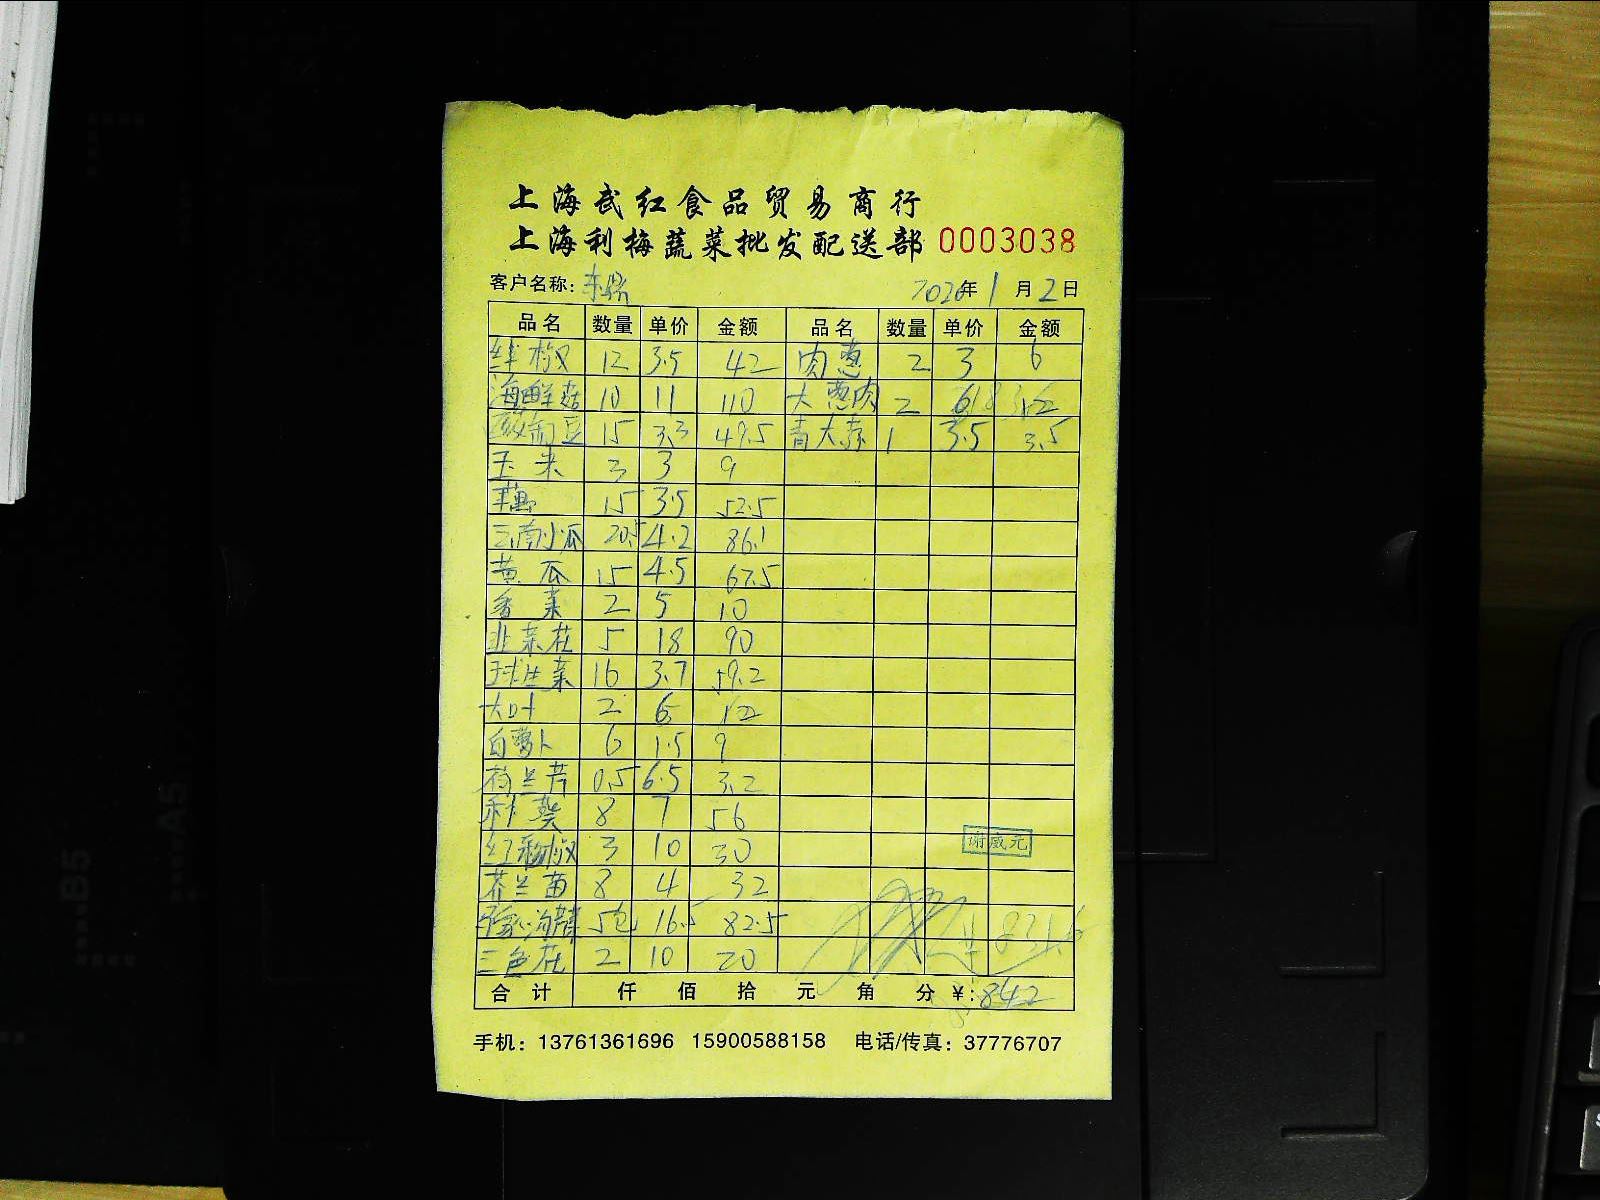 上海武红食品贸易商行
上海利梅蔬菜批发配送部 0003038
客户名称: 2020年1月2日
品名 数量 单价 金额 品名 数量 单价 金额
红椒 12 3.5 42 肉葱 2 3 6
海鲜菇 10 11 110 大葱肉 2 6
酸豇豆 15 3.3 49.5 青大蒜 1 3.5 3.5
玉米 3 3 9
藕 15 3.5 52.5
云南小瓜 20.5 4.2 86.1
黄瓜 15 4.5 67.5
香菜 2 5 10
韭菜花 5 18 90
球生菜 16 3.7 59.2
大叶 2 6 12
白萝卜 6 1.5 9
荷兰芹 0.5 6.5 3.2
秋葵 8 7 56
红彩椒 3 10 30
芥兰苗 8 4 32
5包 16.5 82.5 831.6
三色花 2 10 20
谢威元
合计 仟 佰 拾 元 角 分 ¥: 842
手机: 13761361696 15900588158 电话/传真: 37776707
B5
A5